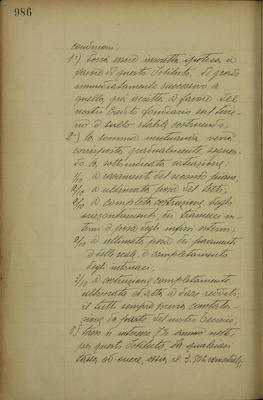 986
condizioni:
1°) Dovrà essere inscritta ipoteca a
favore di questo Istituto, di grado
immediatamente successivo a
quella già inscritta a favore del
nostro Credito fondiario sul terre-
no e sullo stabile costruendo;
2°) la somma mutuanda verrà
corrisposta gradualmente, secon-
do la sottoindicata situazione:
1/10 a
2/10 a ultimata posa del tetto;
2/10 a completa costruzione degli
interni e posa degli infissi esterni;
2/10 a ultimata posa dei pavimenti
e delle scale, e completamento
degli intonaci;
3/10 a costruzione completamente
ultimata ed atta a dare reddito;
il tutto sempre previa constata-
zione da parte del nostro Tecnico;
3°) tasso d'interesse 7% annuo netto
per questo Istituto, da qualsiasi
tassa od onere, ossia, il 3.50% semestrale,